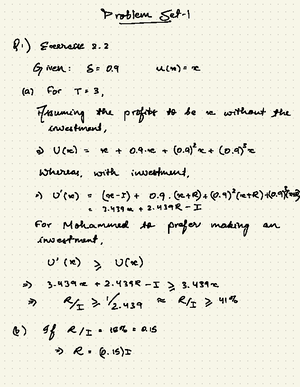 Problem Set-1
Q.1) Exercise 2.2
Given: δ = 0.9 u(x) = x
(a) For T = 3,
Assuming the profits to be x without the
investment,
⇒ U(x) = x + 0.9·x + (0.9)²x + (0.9)³x
Whereas, with investment,
⇒ U'(x) = (x-I) + 0.9·(x+R) + (0.9)²(x+R) + (0.9)³(x+R)
= 3.439x + 2.439R - I
For Mohammed to prefer making an
investment,
U'(x) ≥ U(x)
⇒ 3.439x + 2.439R - I ≥ 3.439x
⇒ R/I ≥ 1/2.439 ≈ R/I ≥ 41%
(b) If R/I = 15% = 0.15
⇒ R = (0.15)I